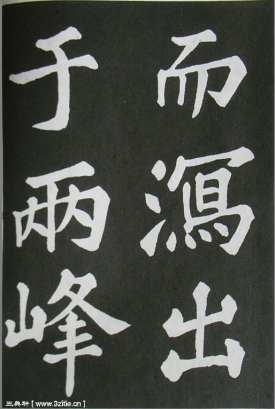 而瀉出
于兩峰
三典轩【www.3zitie.cn】